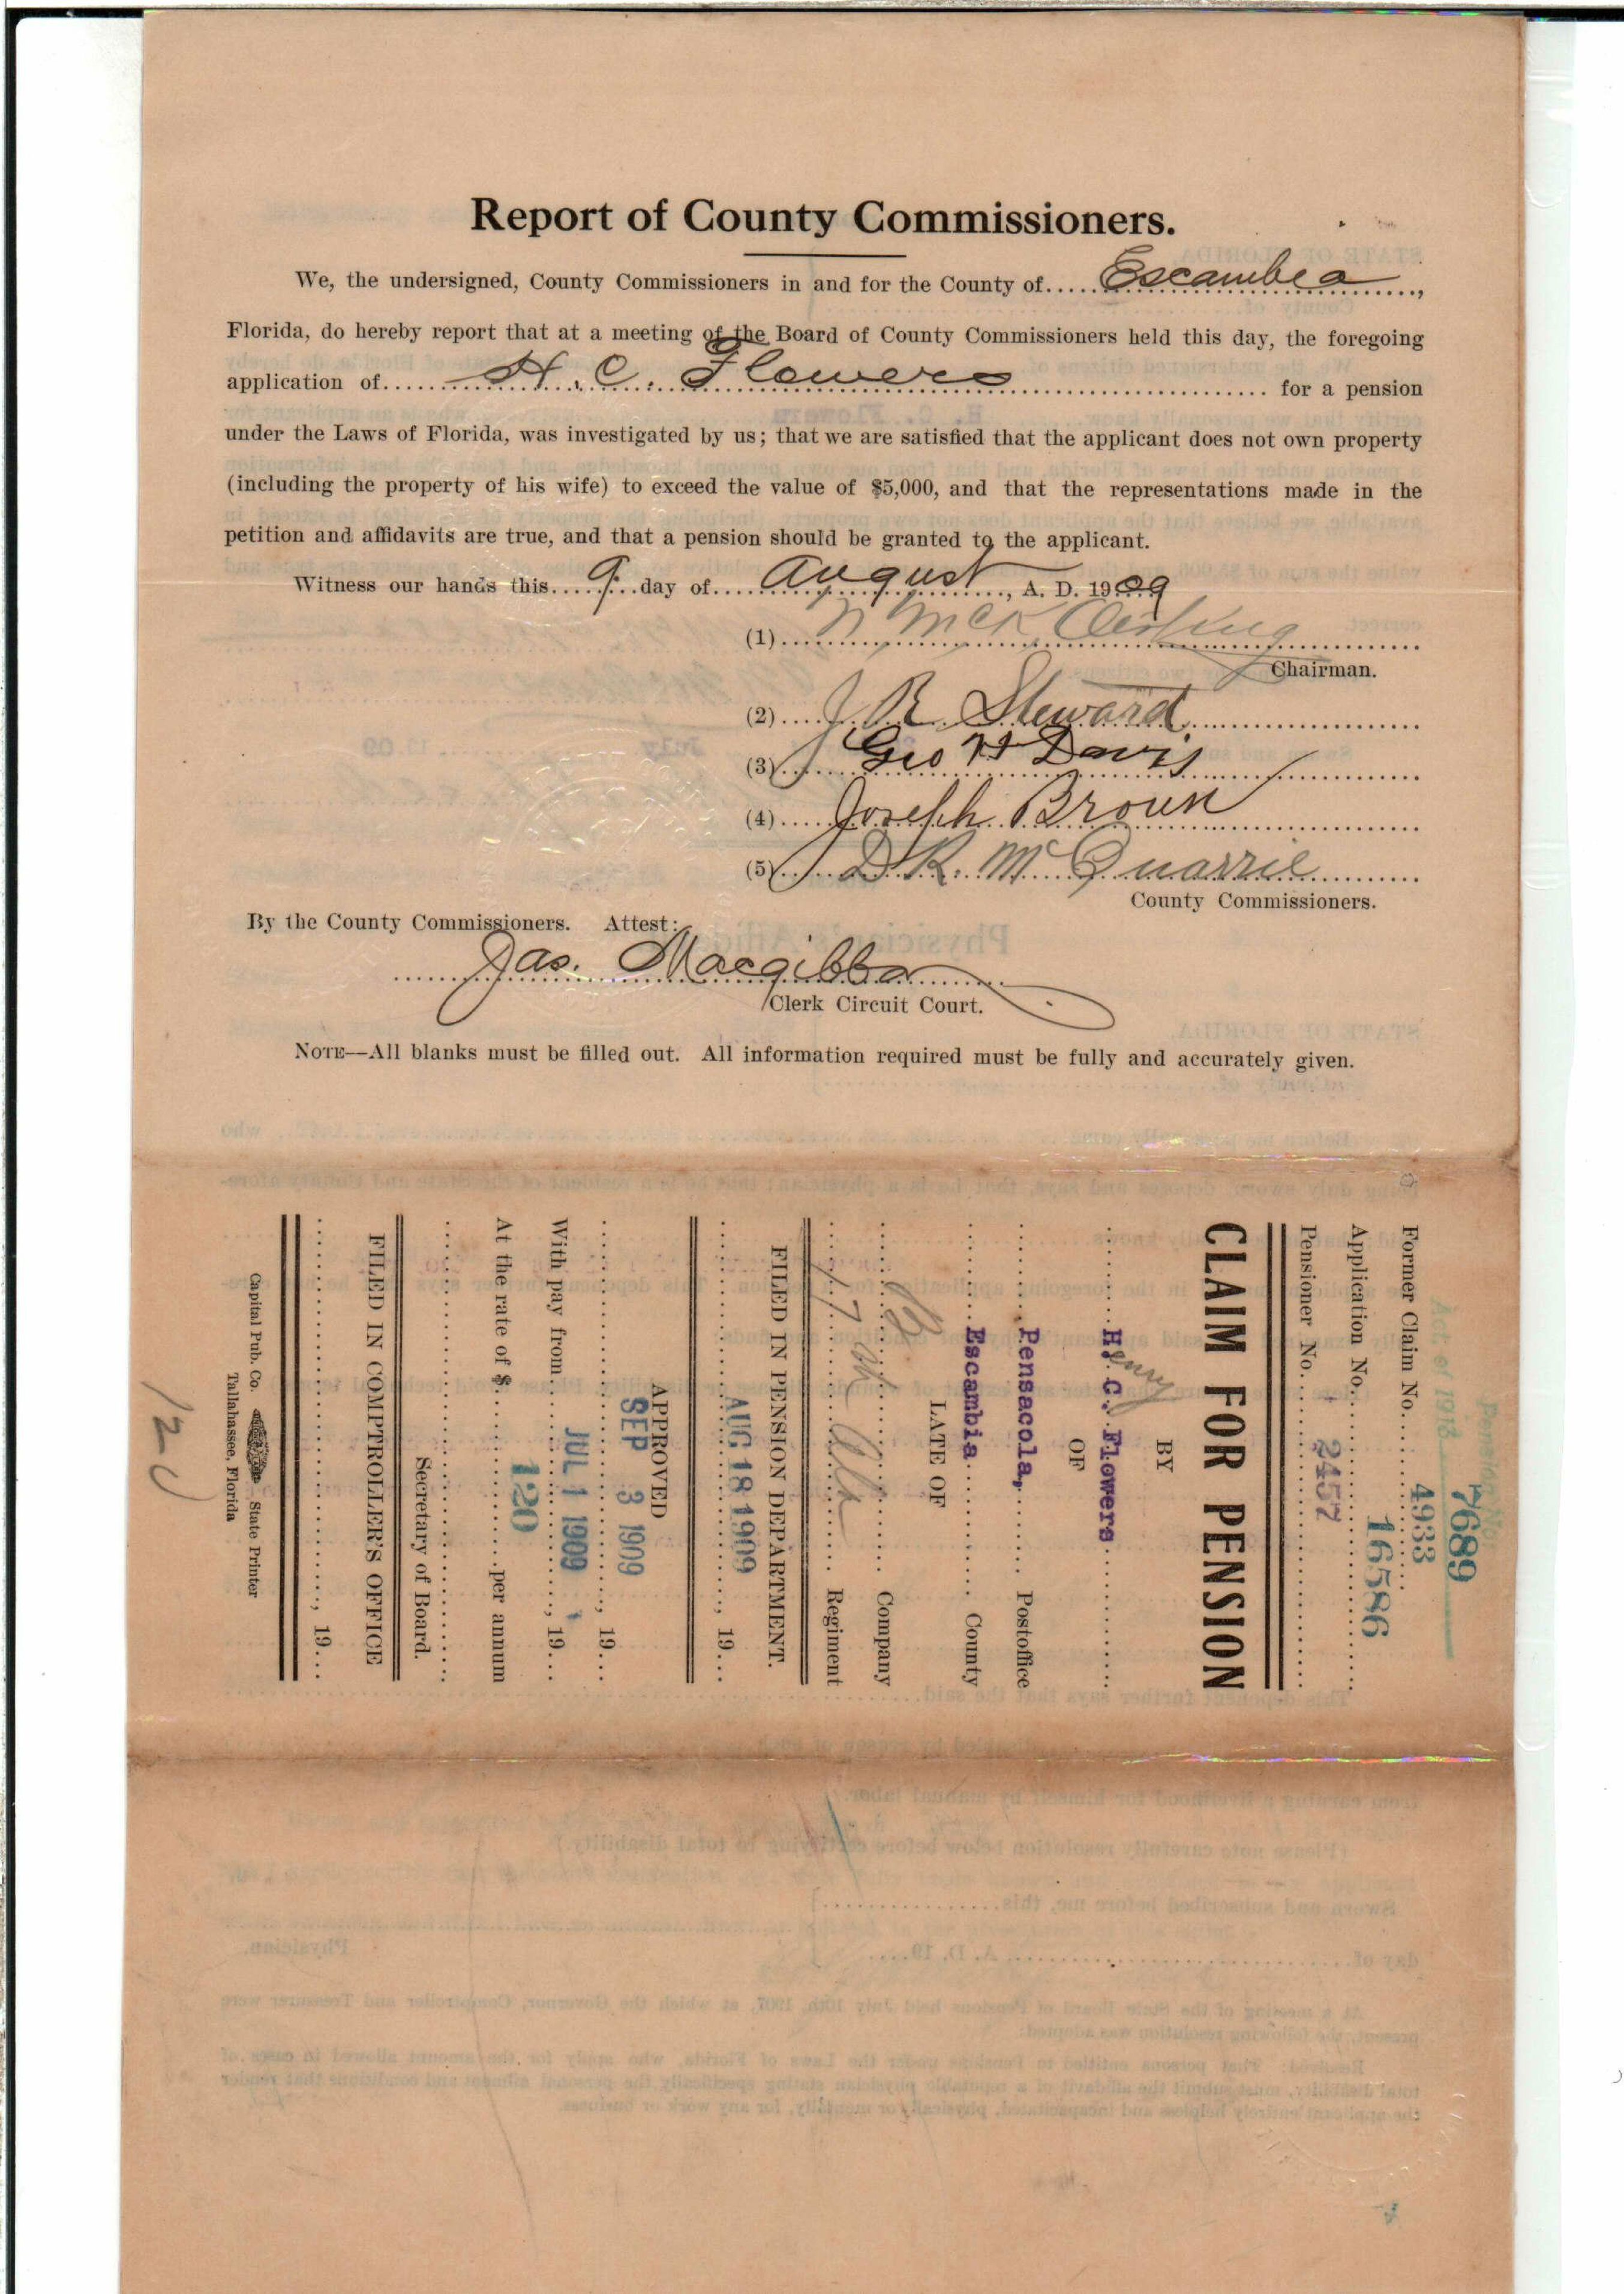 Report of County Commissioners.
We, the undersigned, County Commissioners in and for the County of..... Escambia ......,
Florida, do hereby report that at a meeting of the Board of County Commissioners held this day, the foregoing
application of...... H. C. Flowers ...... for a pension
under the Laws of Florida, was investigated by us; that we are satisfied that the applicant does not own property
(including the property of his wife) to exceed the value of $5,000, and that the representations made in the
petition and affidavits are true, and that a pension should be granted to the applicant.
Witness our hands this.... 9. ..day of.... August ......, A. D. 1909
(1).... McK Oerting
Chairman.
(2).... J. R. Steward
(3).... Geo H Davis
(4).... Joseph Broun
(5).... D K. McQuarrie
County Commissioners.
By the County Commissioners. Attest:
Jas. Macgibbon
Clerk Circuit Court.
NOTE—All blanks must be filled out. All information required must be fully and accurately given.
Act of 1913
Pension No.
7689
Former Claim No. 4933
Application No. 16586
Pensioner No. 2457
CLAIM FOR PENSION
BY
H. C. Flowers
Henry
OF
Pensacola, Postoffice
Escambia County
LATE OF
B Company
17th Ala Regiment
FILED IN PENSION DEPARTMENT.
AUG 18 1909, 19...
APPROVED
SEP 3 1909, 19...
With pay from JUL 1 1909, 19...
At the rate of $ 120 per annum
Secretary of Board.
FILED IN COMPTROLLER'S OFFICE
......, 19...
Capital Pub. Co. State Printer
Tallahassee, Florida
120